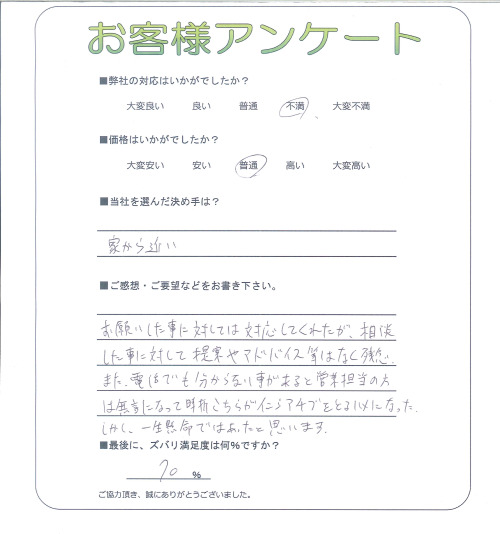 お客様アンケート
■弊社の対応はいかがでしたか？
大変良い 良い 普通 不満 大変不満
■価格はいかがでしたか？
大変安い 安い 普通 高い 大変高い
■当社を選んだ決め手は？
家から近い
■ご感想・ご要望などをお書き下さい。
お願いした事に対しては対応してくれたが、相談
した事に対して提案やアドバイス等はなく残念。
また、電話でも分からない事があると営業担当の方
は無言になって時折こちらがイニシアチブをとるハメになった。
しかし、一生懸命ではあったと思います。
■最後に、ズバリ満足度は何%ですか？
70 %
ご協力頂き、誠にありがとうございました。